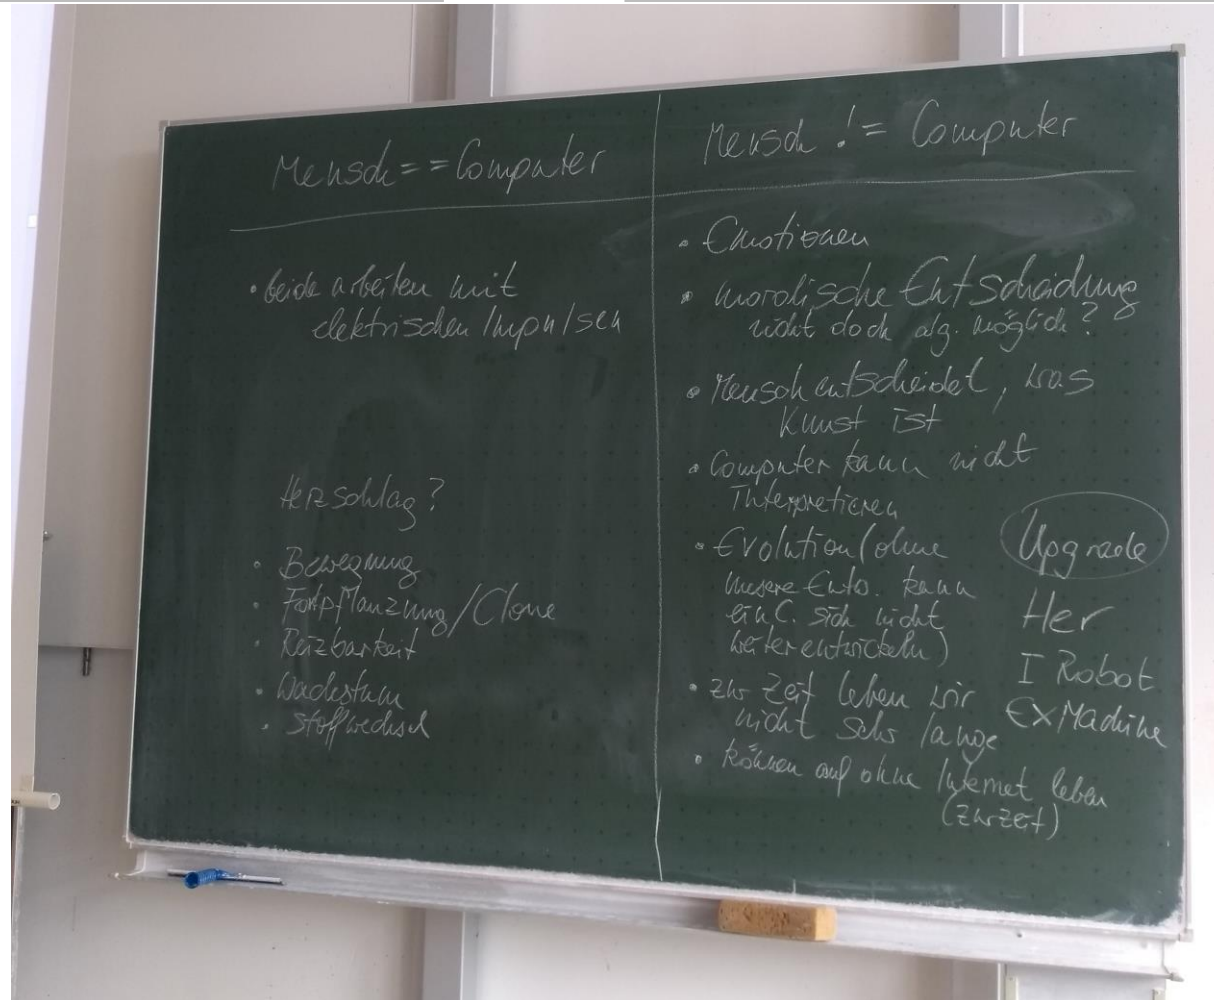 Mensch == Computer
• beide arbeiten mit
elektrischen Impulsen
Herzschlag?
• Bewegung
• Fortpflanzung/Clone
• Reizbarkeit
• Wachstum
• Stoffwechsel
Mensch != Computer
• Emotionen
• moralische Entscheidung
nicht doch alg. möglich?
• Mensch entscheidet, was
Kunst ist
• Computer kann nicht
Interpretieren
• Evolution (ohne
unsere Ento. kann
ein C. sich nicht
weiterentwickeln)
• zur Zeit leben wir
nicht sehr lange
• können auf ohne Internet leben
(zurzeit)
Upgrade
Her
I Robot
Ex Machine